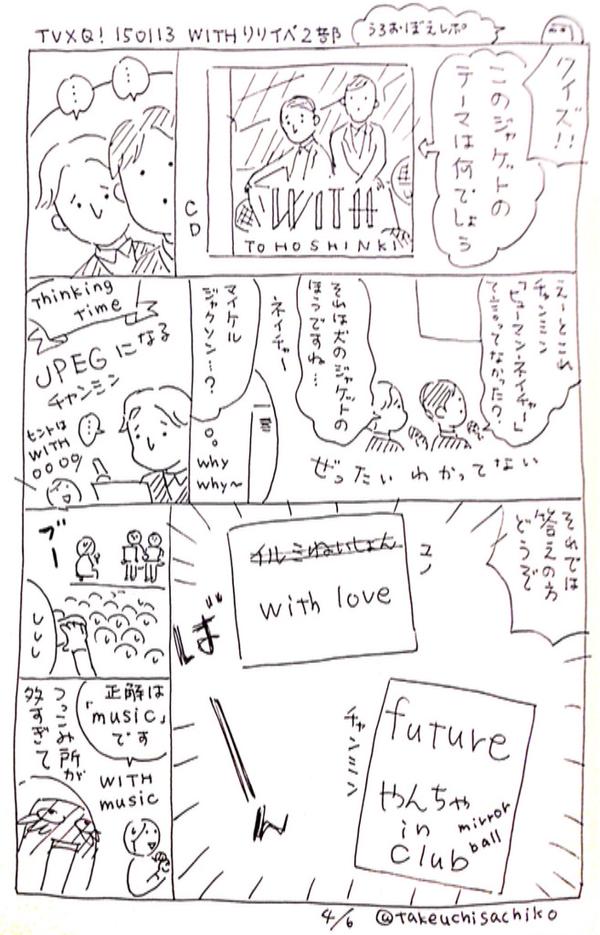 TVXQ! 150113 WITHリリイベ2部
うろおぼえレポ
クイズ!!
このジャケットの
テーマは何でしょう
WITH
TOHOSHINKI
CD
えーとこれ
チャンミン
「ヒューマン・ネイチャー」
て言ってなかった?
それは犬のジャケットの
ほうですね…
ネイチャー
マイケル
ジャクソン…?
why
why~
ぜったいわかってない
Thinking
Time
JPEGになる
チャンミン
ヒントは
WITH
○○○○
それでは
答えの方
どうぞ
ユノ
イルミねいしょん
with love
ばーん
チャンミン
future
やんちゃ
in
club
mirror
ball
ブー
しししし
正解は
「music」
です
WITH
music
つっこみ所が
多すぎて
4/6 @takeuchisachiko